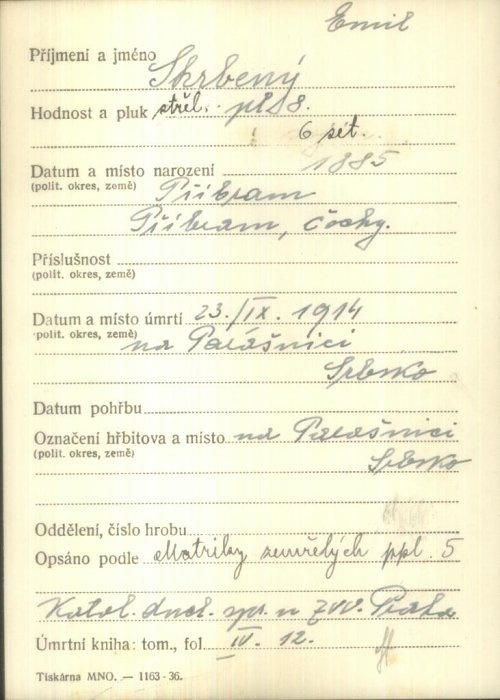 Emil
Příjmení a jméno Skrbený
Hodnost a pluk střel. pl 88.
6 set.
Datum a místo narození 1885
(polit. okres, země) Příbram
Příbram, Čechy.
Příslušnost
(polit. okres, země)
Datum a místo úmrtí 23./IX. 1914
(polit. okres, země) na Parašnici
Srbsko
Datum pohřbu
Označení hřbitova a místo na Parašnici
(polit. okres, země) Srbsko
Oddělení, číslo hrobu
Opsáno podle Matriky zemřelých ppl. 5
Katol. duch. spr. u ZVV. Praha
Úmrtní kniha: tom., fol. IV. 12.
Tiskárna MNO. — 1163-36.